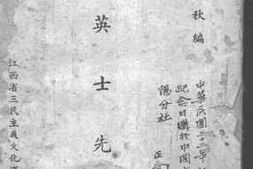 秋編
英士先
江西省三民主義文化運
中華民國三二年
紀念日購於中國文
陽分社